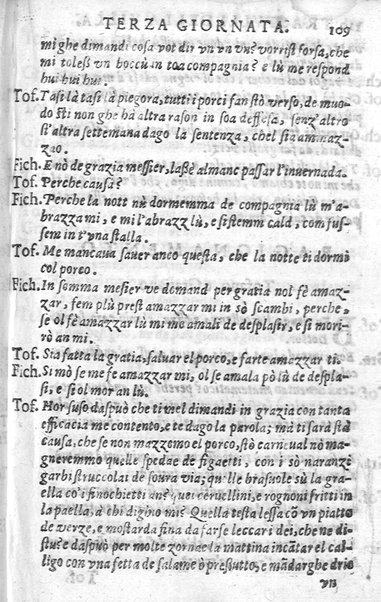 TERZA GIORNATA. 109
mi ghe dimandi cosa vot dir vn vn vn? vorrist forsa, che
mi toless vn boccù in toa compagnia? e lù me respond
hui hui hui.
Tof. Tasi là tasi là piegora, tutti i porci fan stò verso, de muo-
do sti non ghe hà altra rason in soa deffesa, senz'altro
st'altra settemana dago la sentenza, chel sia amaz-
zao.
Fich. E nò de grazia messier, lassè almanc passar l'invernada.
Tof. Perche causa?
Fich. Perche la nott nù dormemma de compagnia lù m'a-
brazza mi, e mi l'abrazz lù, e sistemm cald, com fus-
sem in t'vna stalla.
Tof. Me mancaua sauer anco questa, che la notte ti dormi
col porco.
Fich. In somma mesier ve demand per gratia nol fè amaz-
zar, fem plù prest amazzar mi in sò scambi, perche,
se ol fè amazzar lù mi mo amali de desplasir, e si mori-
rò an mi.
Tof. Sia fatta la gratia, saluar el porco, e farte amazzar ti.
Fich. Si mò se me fe amazzar mi, ol se amala pò lù de despla-
si, e si ol mor an lù.
Tof. Hor suso daspuò che ti me'l dimandi in grazia con tanta
efficacia me contento, e te dago la parola; mà ti sarà stà
causa, che se non mazzemo el porco, stò carneual nò ma-
gneremmo quelle spedae de figaetti, con i sò naranzi
garbi struccolai de soura via; qu'lle brasuole sù la gra-
ella co'i finochietti ans quei ceruellini, e rognoni fritti in
la paella, à chi dighio mi? Quella testa lessa cō vn piatto
de verze, e mostarda fina da farse leccar i dei, che ne di-
stu? e daspuò per molte zornae la mattina incātar el cal-
ligo con vna fetta de salame ò presiutto, e māda rghe drio
vn